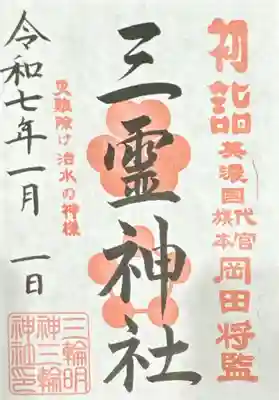 初詣
美濃國代官
旗本
岡田将監
三靈神社
災難除け 治水の神様
令和七年一月一日
三輪明
神三輪
神社印